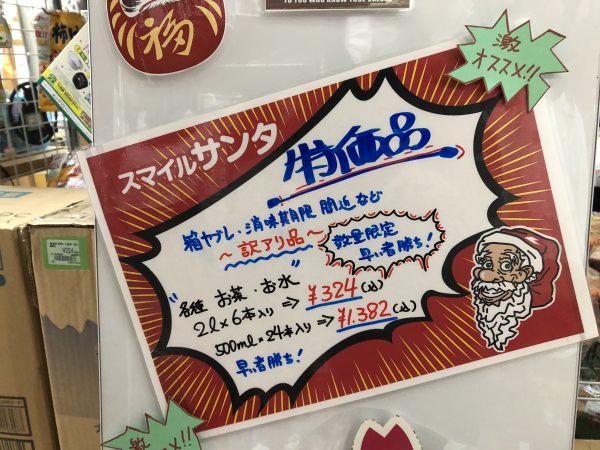 福
TO YOU WHO KNOW
激
オススメ!!
スマイルサンタ
特価品
箱ヤブレ・消味期限 間近 など
〜訳アリ品〜
数量限定
早い者勝ち!
"各種 お茶・お水"
2ℓ×6本入り ⇒ ¥324(込)
500mℓ×24本入り ⇒ ¥1.382(込)
早い者勝ち!
激
オススメ!!